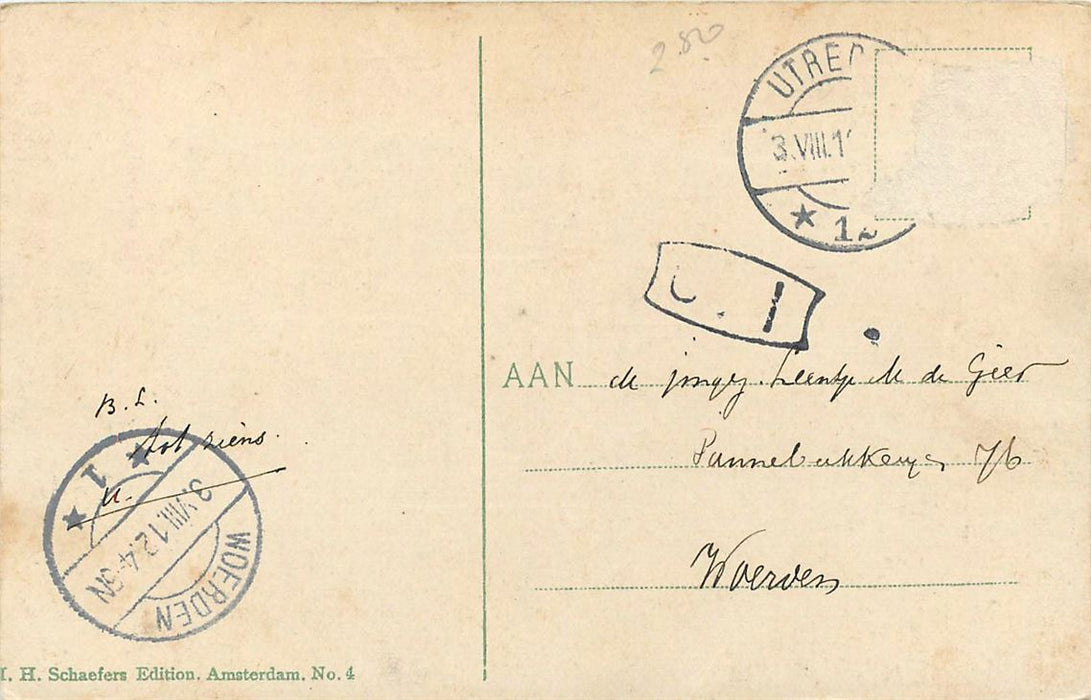 280
UTRE
3.VIII.1
★ 12
AAN de jongej. Leentje M de Gier
76
Woerden
B. L.
tot ziens.
M.
★ 1 ★
3.VIII.12.4-5N
WOERDEN
H. Schaefers Edition, Amsterdam, No. 4